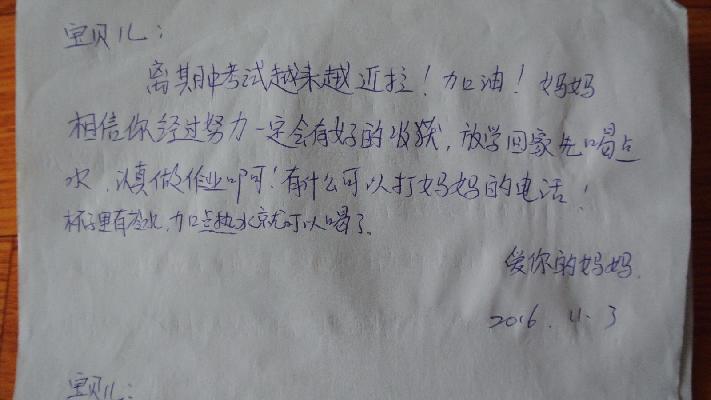 宝贝儿：
离期中考试越来越近拉！加油！妈妈
相信你经过努力一定会有好的收获，放学回家先喝点
水，认真做作业即可！有什么可以打妈妈的电话！
杯子里有冷水，加点热水就可以喝了。
爱你的妈妈
2016.11.3
宝贝儿：